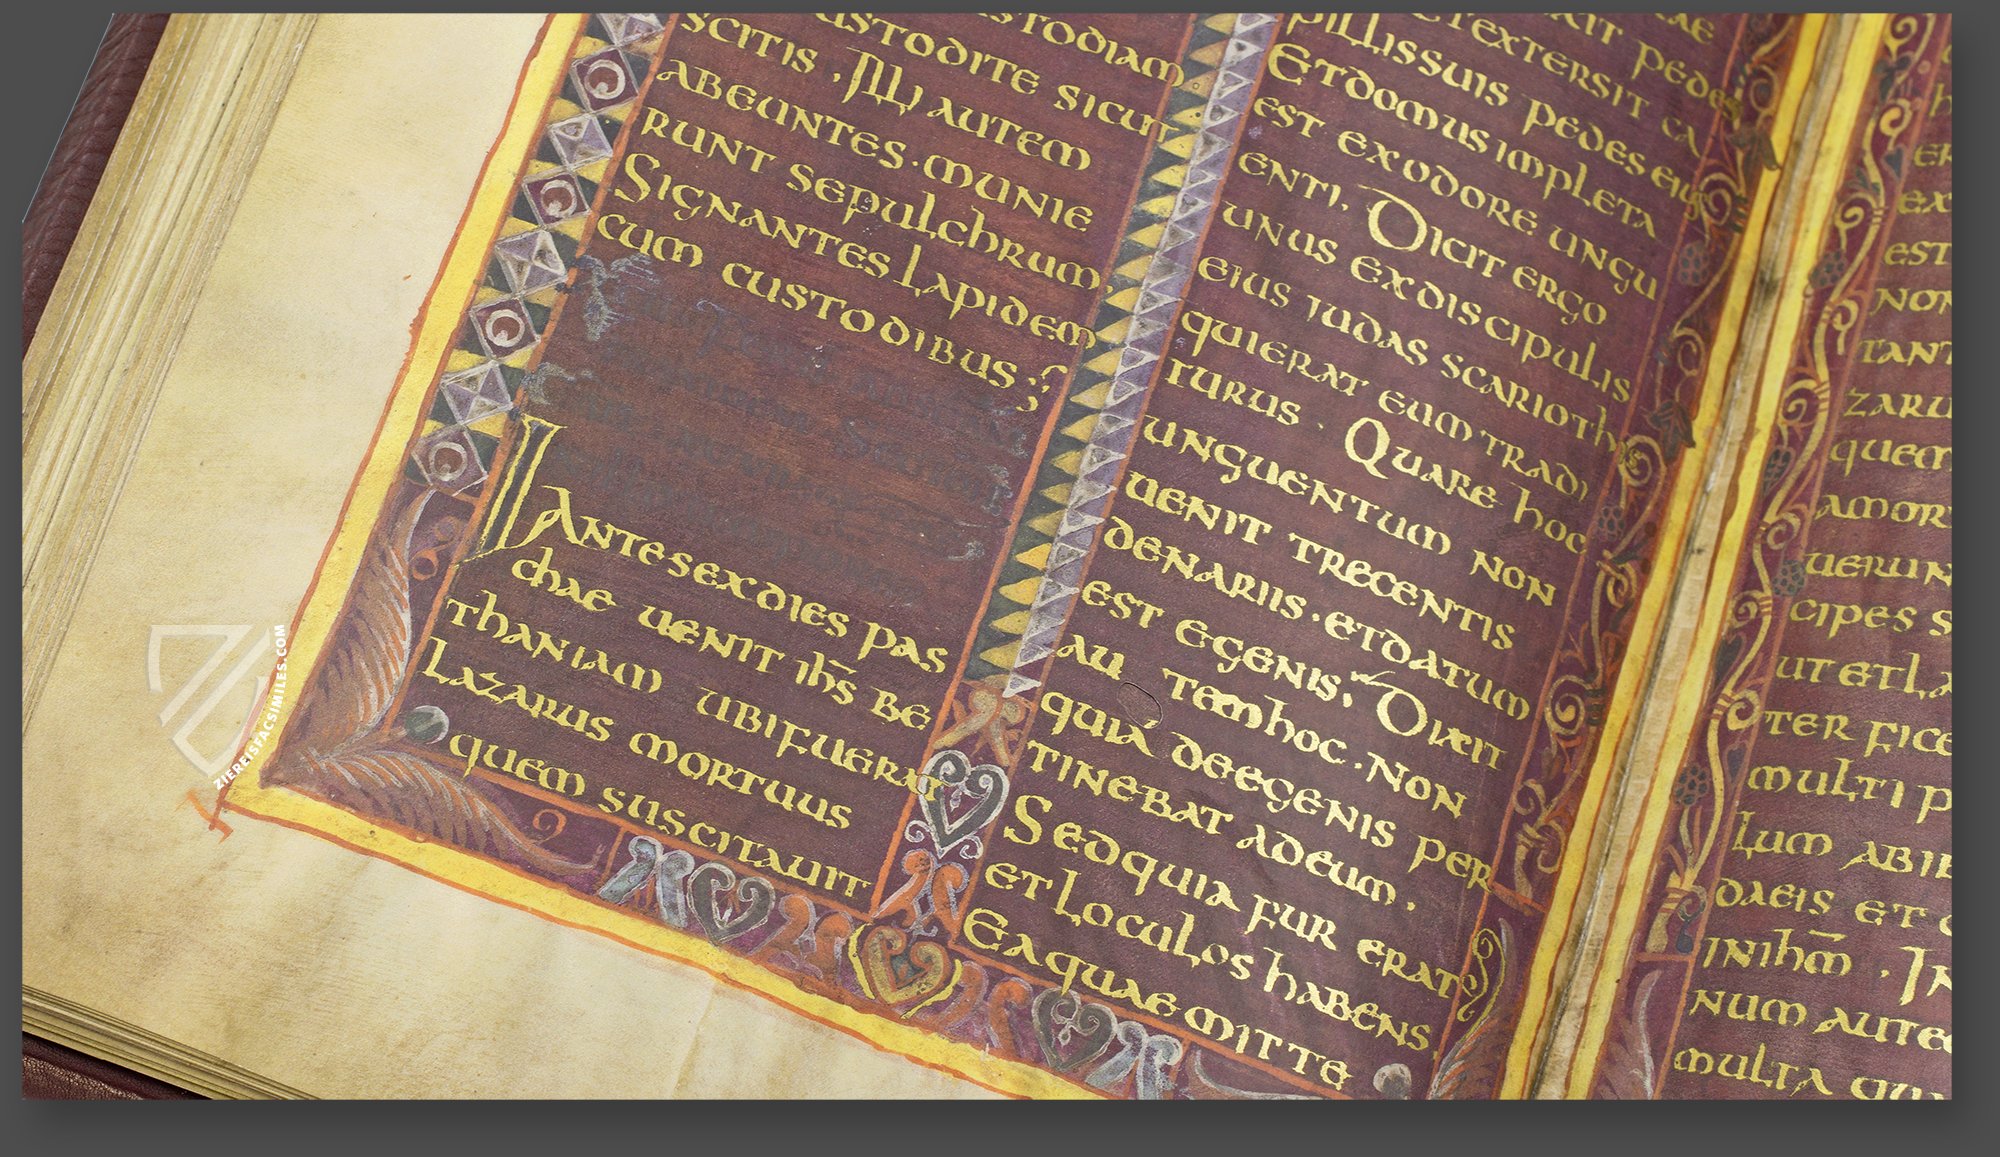 STODIAM
USTODITE SICUT
SCITIS . ILLI AUTEM
ABEUNTES . MUNIE
RUNT SEPULCHRUM.
SIGNANTES LAPIDEM
CUM CUSTODIBUS
ANTE SEX DIES PAS
CHAE UENIT IHS BE
THANIAM UBI FUERAT
LAZARUS MORTUUS
QUEM SUSCITAUIT
XIT PEDES
ET EXTERSIT CA
PILLIS SUIS PEDES EIUS
ET DOMUS IMPLETA
EST EX ODORE UNGU
ENTI. DICIT ERGO
UNUS EX DISCIPULIS
EIUS JUDAS SCARIOTH
QUI ERAT EUM TRADI
TURUS . QUARE HOC
UNGUENTUM NON
UENIT TRECENTIS
DENARIIS . ET DATUM
EST EGENIS. DIXIT
AU TEM HOC . NON
QUIA DE EGENIS PER
TINEBAT AD EUM .
SED QUIA FUR ERAT
ET LOCULOS HABENS.
EA QUAE MITTE
ER
EX
EST
NON
TANT
ZARU
QUEM
AMOR
UERUN
CIPES S
UT ET LA
TER FICE
MULTI P
LUM ABIB
DAEIS ET
IN IHM . IN
NUM AUTE
MULTA QUI
ZIEREISFACSIMILES.COM